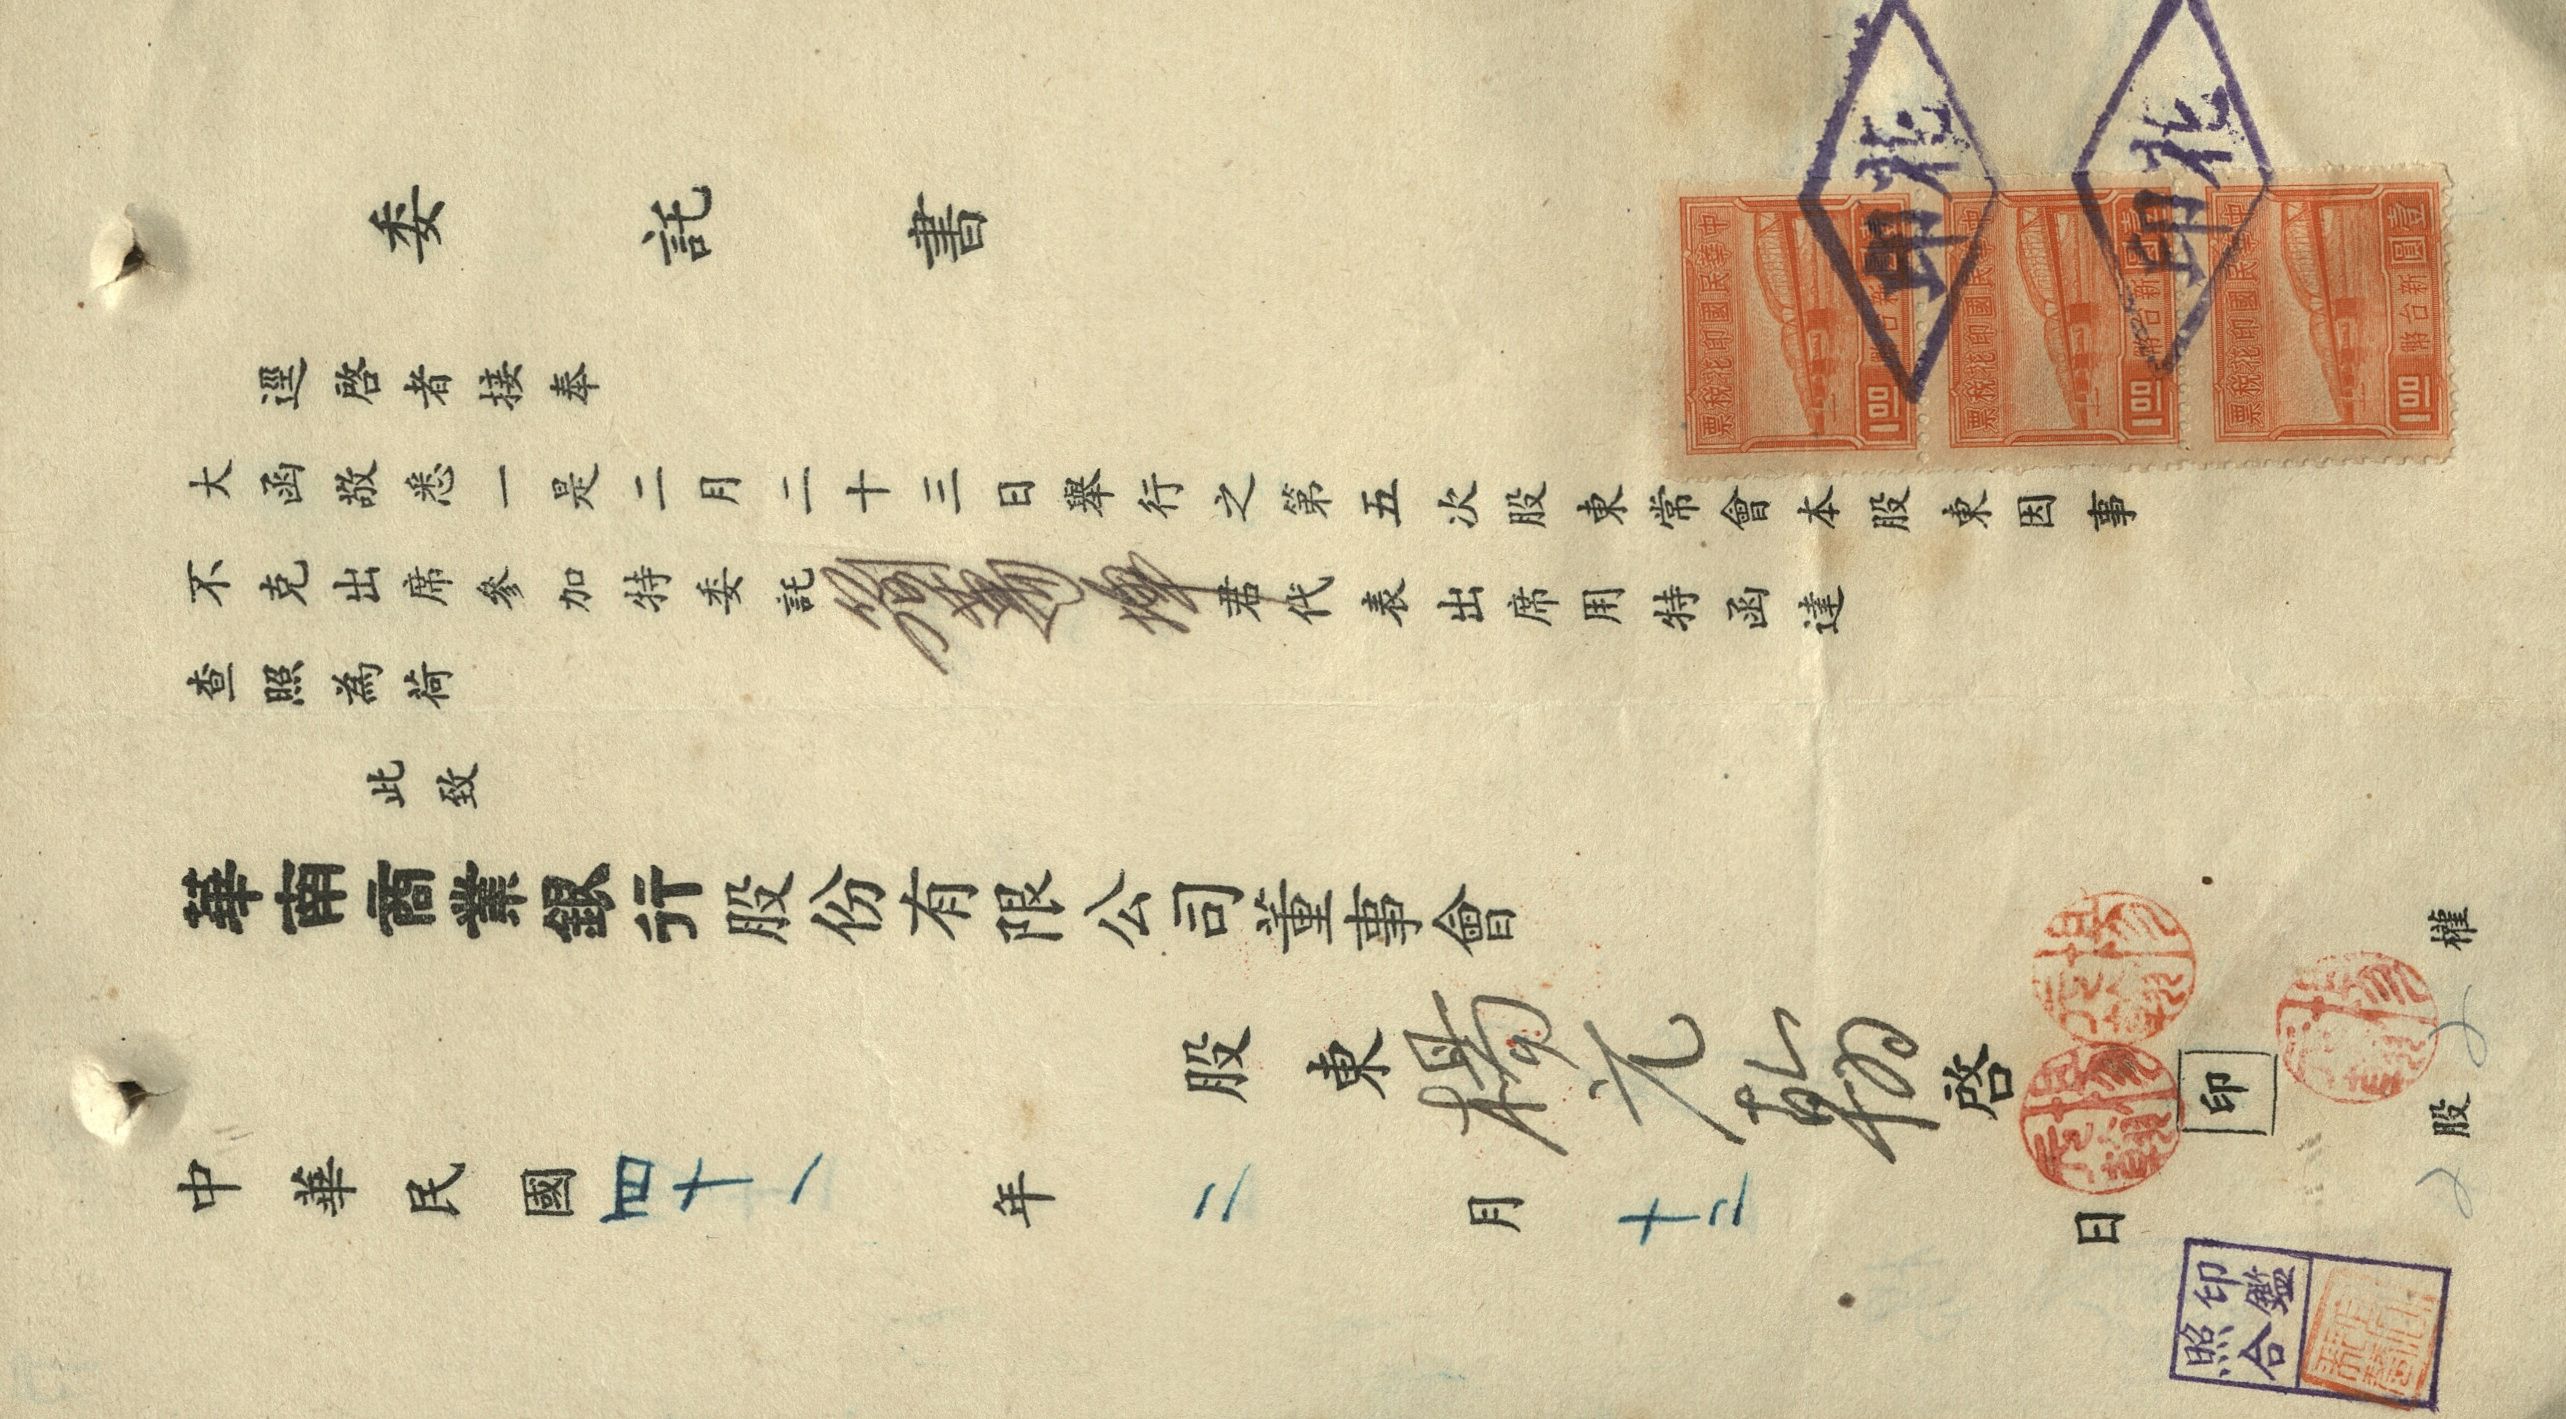 委託書
逕啓者接奉
大函敬悉一是二月二十三日舉行之第五次股東常會本股東因事
不克出席參加特委託 君代表出席用特函達
查照為荷
此致
華南商業銀行股份有限公司董事會
股東楊元翰啓
印
股 權
中華民國四十一年二月十二日
印鑑
照合
中華民國印花稅票
壹圓
新台幣
1.00
中華民國印花稅票
壹圓
新台幣
1.00
中華民國印花稅票
壹圓
新台幣
1.00
印花
印花